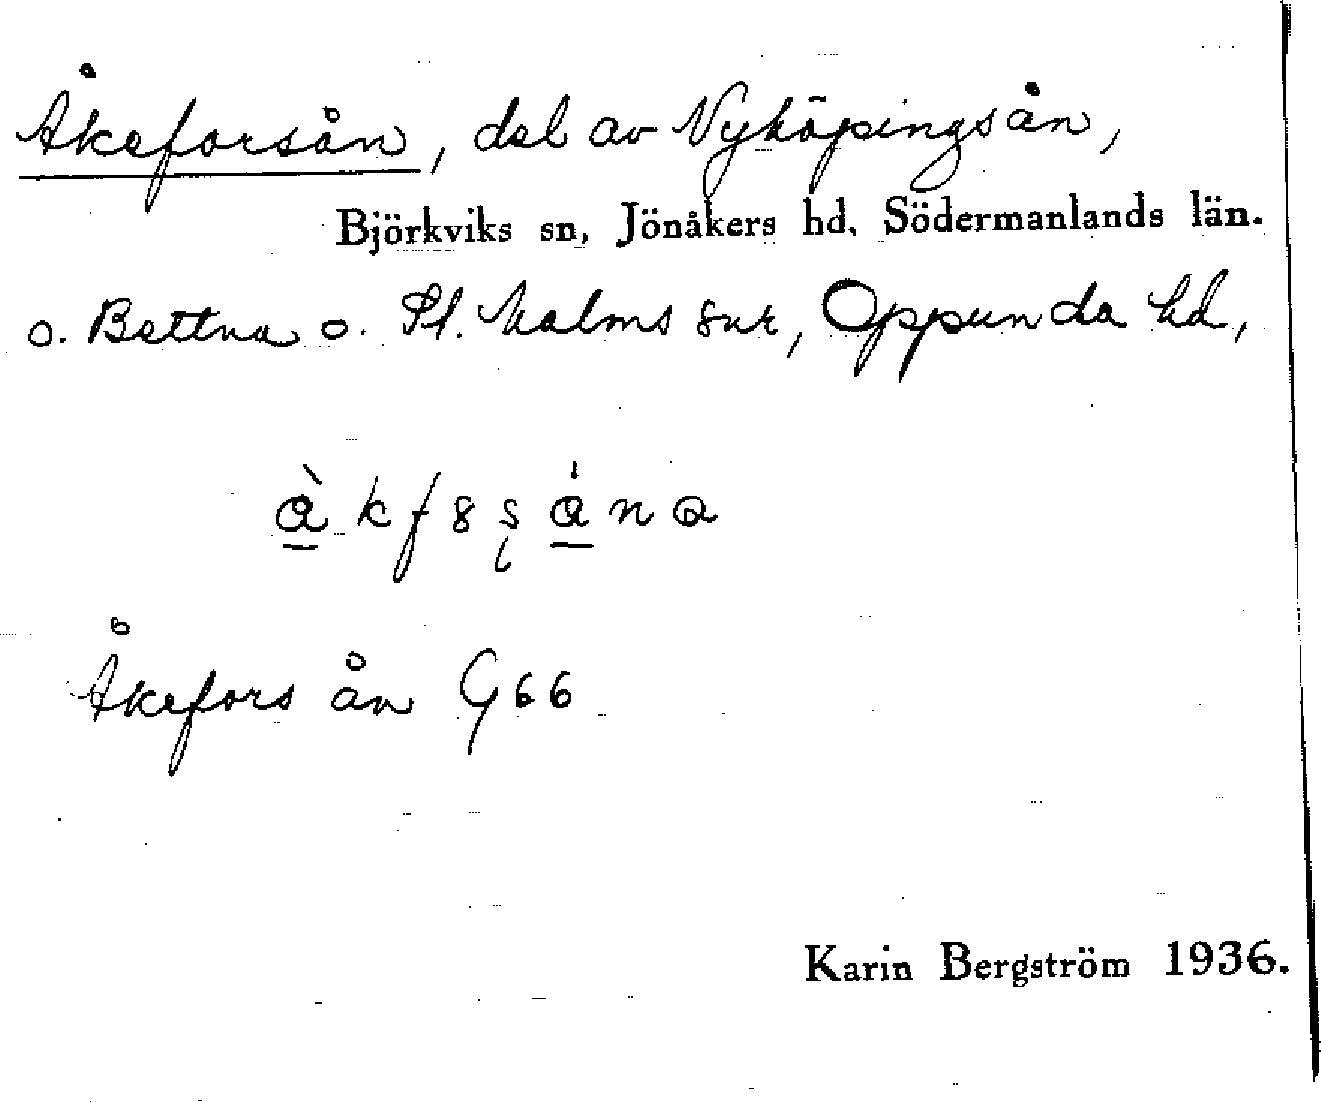 Åkeforsån, del av Nyköpingsån,
Björkviks sn, Jönåkers hd. Södermanlands län.
o. Bettna o. St. Malms snr, Oppunda hd,
Åkefors ån G66
Karin Bergström 1936.